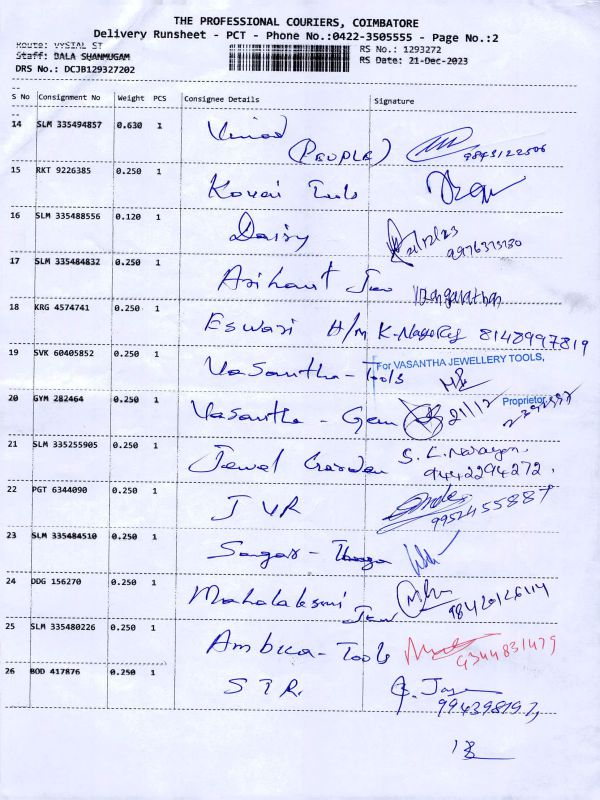 THE PROFESSIONAL COURIERS, COIMBATORE
Delivery Runsheet - PCT - Phone No.:0422-3505555 - Page No.:2
Route: VYSIAL ST
RS No.: 1293272
Staff: BALA SHANMUGAM
RS Date: 21-Dec-2023
DRS No.: DCJB129327202
S No Consignment No Weight PCS Consignee Details Signature
14 SLM 335494857 0.630 1 Vinod
(PEOPLE) 9843122506
15 RKT 9226385 0.250 1 Kovai Tools
16 SLM 335488556 0.120 1 Daisy
9976373730
17 SLM 335484832 0.250 1 Arihant Jew
18 KRG 4574741 0.250 1 Eswari H/M K. 8148997819
19 SVK 60405852 0.250 1 Vasantha - Tools
For VASANTHA JEWELLERY TOOLS,
Proprietor
20 GYM 282464 0.250 1 Vasantha - Gem 21/12
21 SLM 335255905 0.250 1 Jewel Garden S. K. Narayan.
9442294272,
22 PGT 6344090 0.250 1 JVR
9952455887
23 SLM 335484510 0.250 1 Sangar -
24 DDG 156270 0.250 1 Mahalaksmi Jew
25 SLM 335480226 0.250 1 Ambica - Tools 9344831479
26 BOD 417876 0.250 1 STR.
13